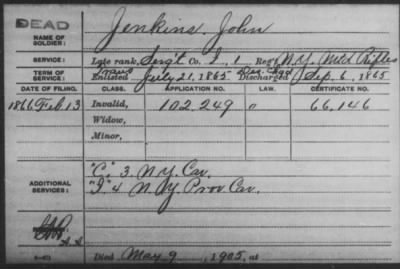 DEAD
Jenkins, John
NAME OF SOLDIER:
SERVICE: Late rank, Serg't Co. I, 1 Reg't N.Y. Mtd Rifles
TERM OF SERVICE: Trans Enlisted July 21, 1865 Discharged Sep. 6, 1865
DATE OF FILING. CLASS. APPLICATION NO. LAW. CERTIFICATE NO.
1866 Feb. 13 Invalid, 102,249 66,146
Widow,
Minor,
"C." 3. N.Y. Cav.
ADDITIONAL SERVICES: "I" 4 N.Y. Prov Cav.
Died May 9, 1905, at